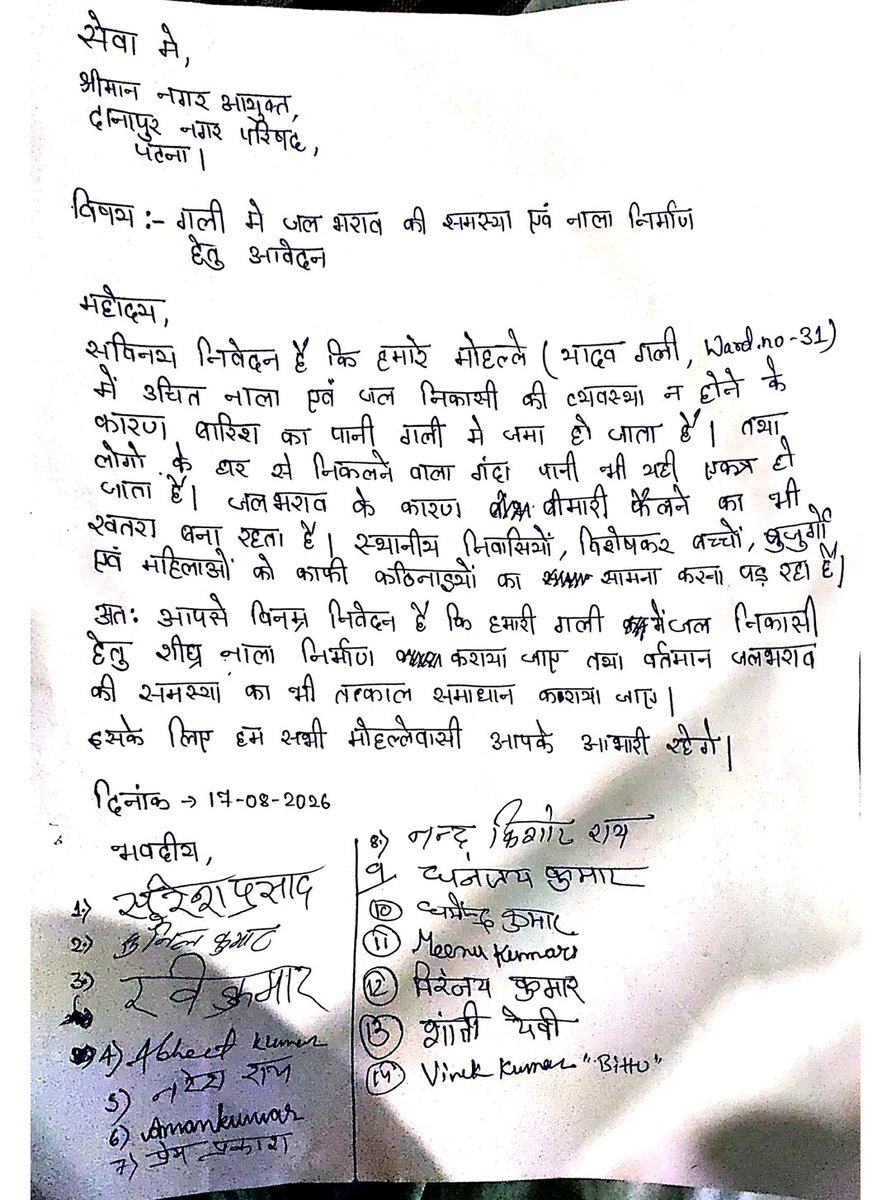 सेवा मे,
श्रीमान नगर आयुक्त,
दानापुर नगर परिषद,
पटना।
विषय :- गली मे जल भराव की समस्या एवं नाला निर्माण
हेतु आवेदन
महोदय,
सविनय निवेदन है कि हमारे मोहल्ले (यादव गली, Ward.no-31)
में उचित नाला एवं जल निकासी की व्यवस्था न होने के
कारण बारिश का पानी गली मे जमा हो जाता है। तथा
लोगो के घर से निकलने वाला गंदा पानी भी यही एकत्र हो
जाता है। जलभराव के कारण बीमारी फैलने का भी
खतरा बना रहता है। स्थानीय निवासियों, विशेषकर बच्चों, बुजुर्गो
एवं महिलाओं को काफी कठिनाइयों का सामना करना पड़ रहा है।
अतः आपसे विनम्र निवेदन है कि हमारी गली में जल निकासी
हेतु शीघ्र नाला निर्माण कराया जाए तथा वर्तमान जलभराव
की समस्या का भी तत्काल समाधान कराया जाए।
इसके लिए हम सभी मोहल्लेवासी आपके आभारी रहेगे।
दिनांक → 17-08-2026
भवदीय,
1.) सुरेश प्रसाद
2.) कुमार
3.) रवि कुमार
4) Kumar
5) नरेश राय
6) Aman kumar
7) प्रेम प्रकाश
8.) नन्द किशोर राय
9 धनंजय कुमार
10 धर्मेन्द्र कुमार
11 Meenu Kumari
12 कुमार
13 शांती देवी
14 Vivek Kumar "Bittu"